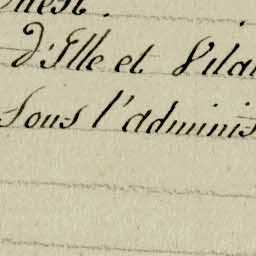 d'Ille et Vilai
Sous l'adminis